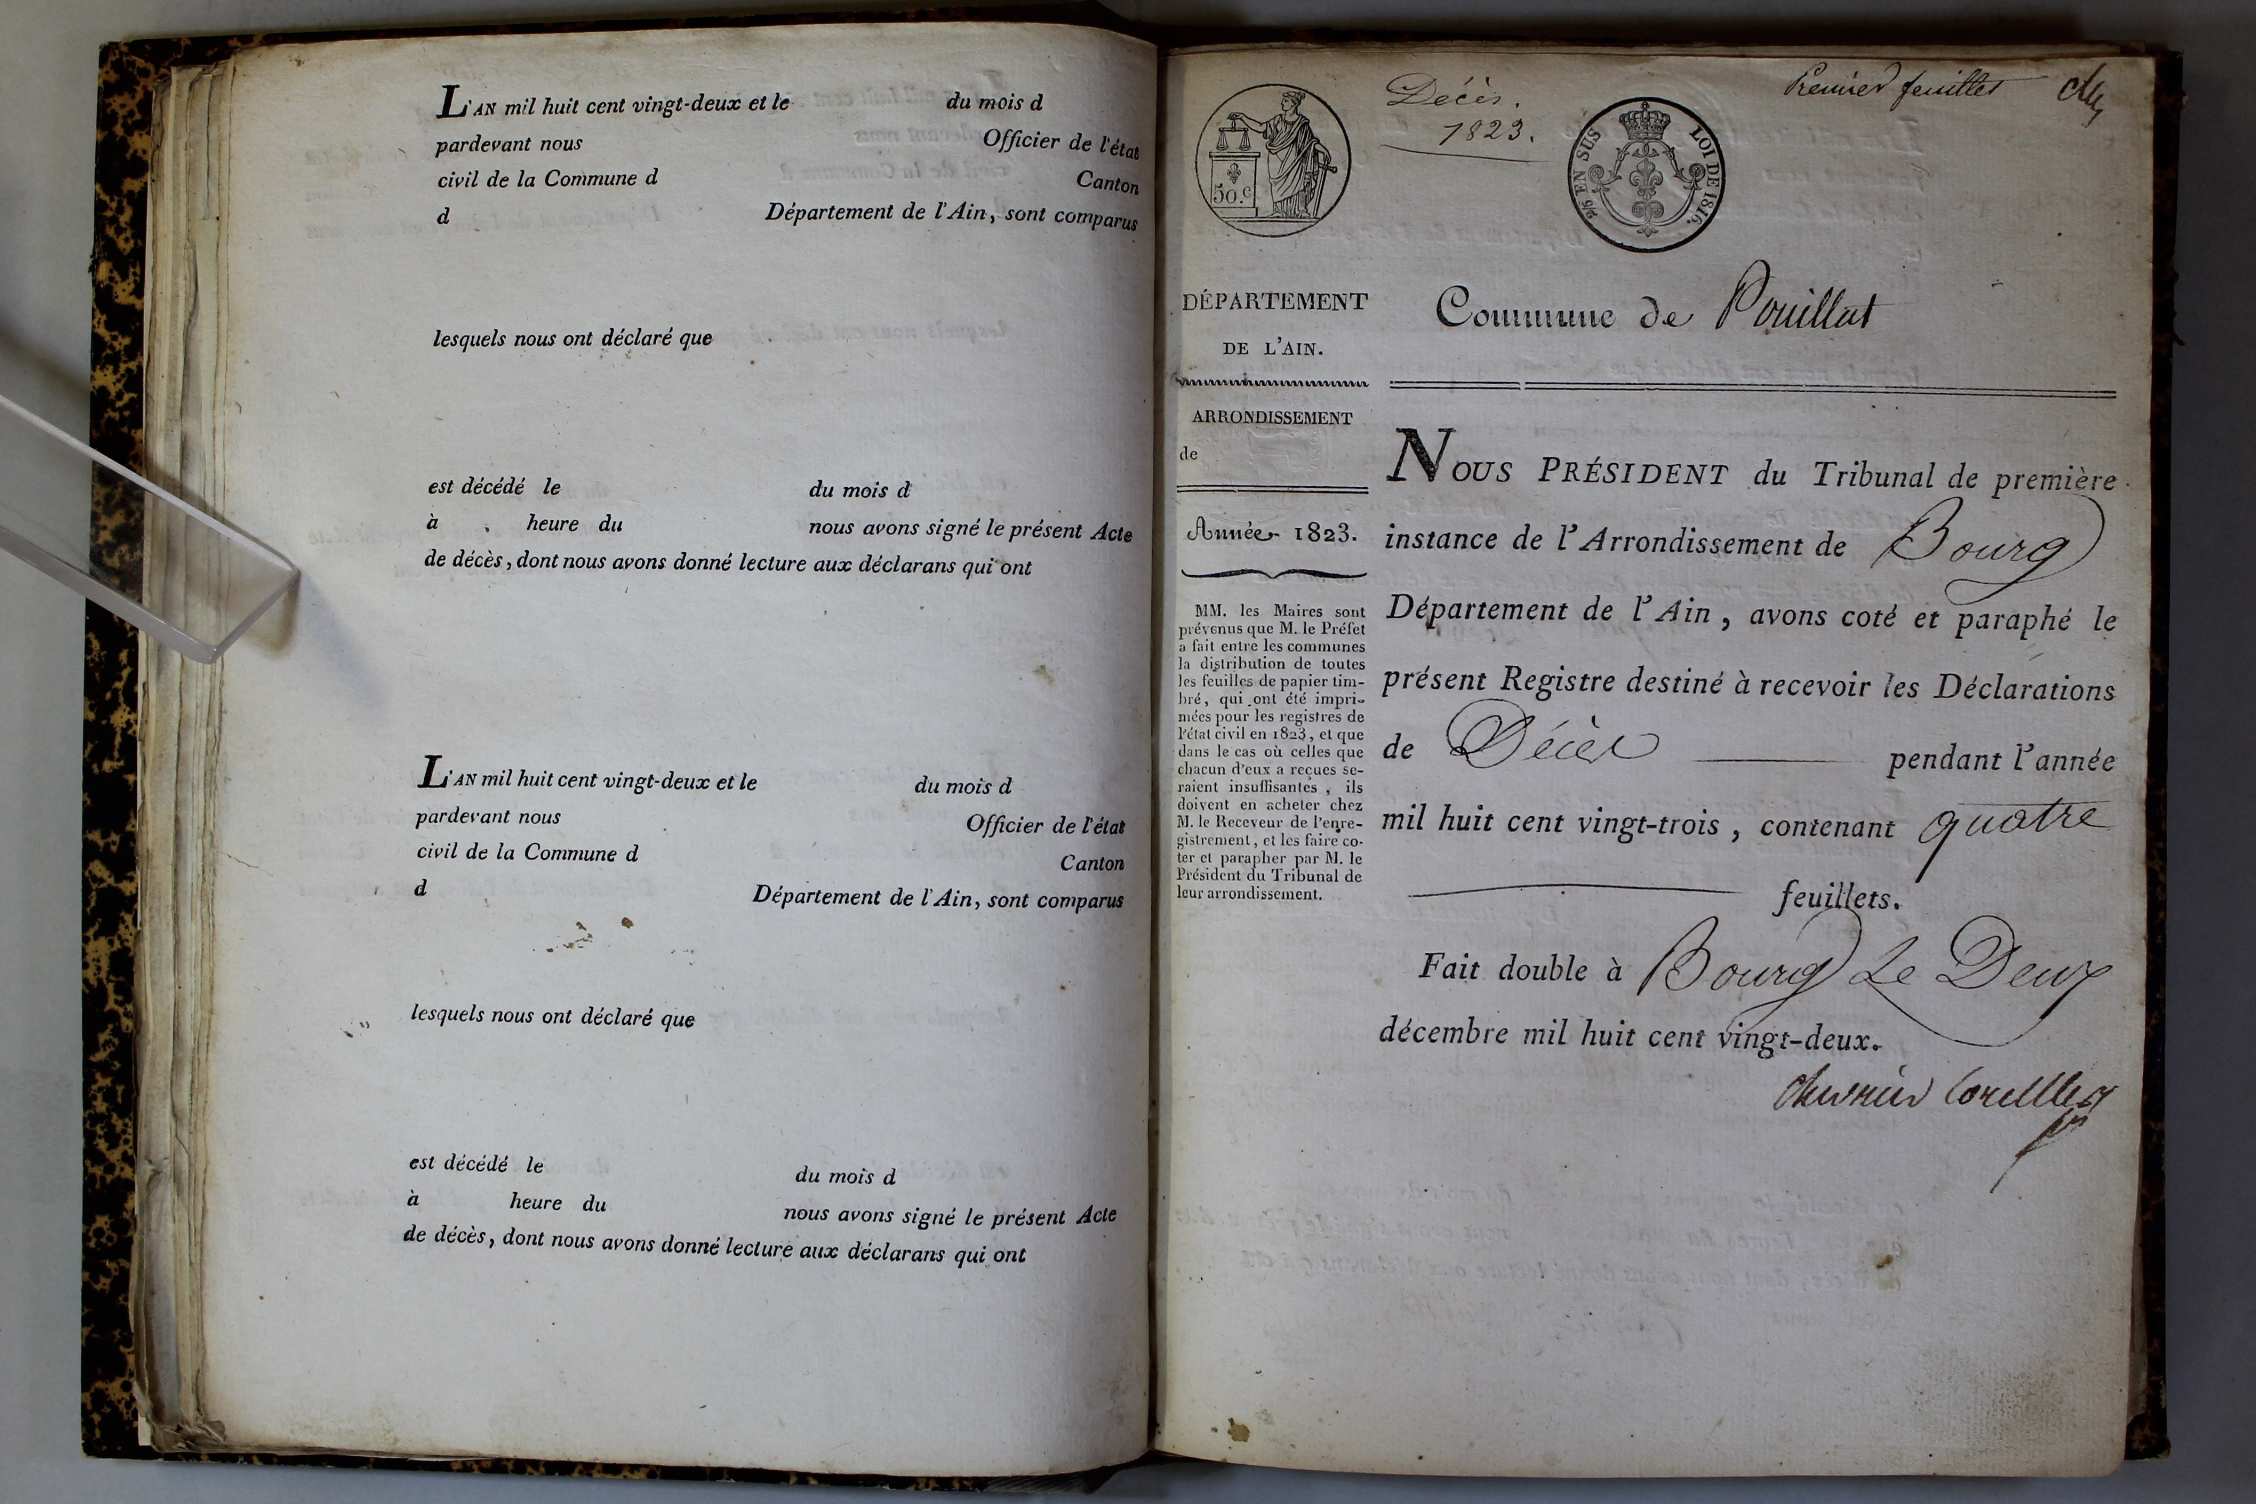 L'AN mil huit cent vingt-deux et le du mois d
pardevant nous Officier de l'état
civil de la Commune d Canton
d Département de l'Ain, sont comparus
lesquels nous ont déclaré que
est décédé le du mois d
à heure du nous avons signé le présent Acte
de décès, dont nous avons donné lecture aux déclarans qui ont
L'AN mil huit cent vingt-deux et le du mois d
pardevant nous Officier de l'état
civil de la Commune d Canton
d Département de l'Ain, sont comparus
lesquels nous ont déclaré que
est décédé le du mois d
à heure du nous avons signé le présent Acte
de décès, dont nous avons donné lecture aux déclarans qui ont
Premier feuillet
Décès.
1823.
50.c
EN SUS LOI DE 1816.
DÉPARTEMENT
DE L'AIN.
ARRONDISSEMENT
de
Année 1823.
MM. les Maires sont
prévenus que M. le Préfet
a fait entre les communes
la distribution de toutes
les feuilles de papier tim-
bré, qui ont été impri-
mées pour les registres de
l'état civil en 1823, et que
dans le cas où celles que
chacun d'eux a reçues se-
raient insuffisantes, ils
doivent en acheter chez
M. le Receveur de l'enre-
gistrement, et les faire co-
ter et parapher par M. le
Président du Tribunal de
leur arrondissement.
Commune de Pouillat
NOUS PRÉSIDENT du Tribunal de première
instance de l'Arrondissement de Bourg
Département de l'Ain, avons coté et paraphé le
présent Registre destiné à recevoir les Déclarations
de Décès pendant l'année
mil huit cent vingt-trois, contenant quatre
feuillets.
Fait double à Bourg Le Deux
décembre mil huit cent vingt-deux.